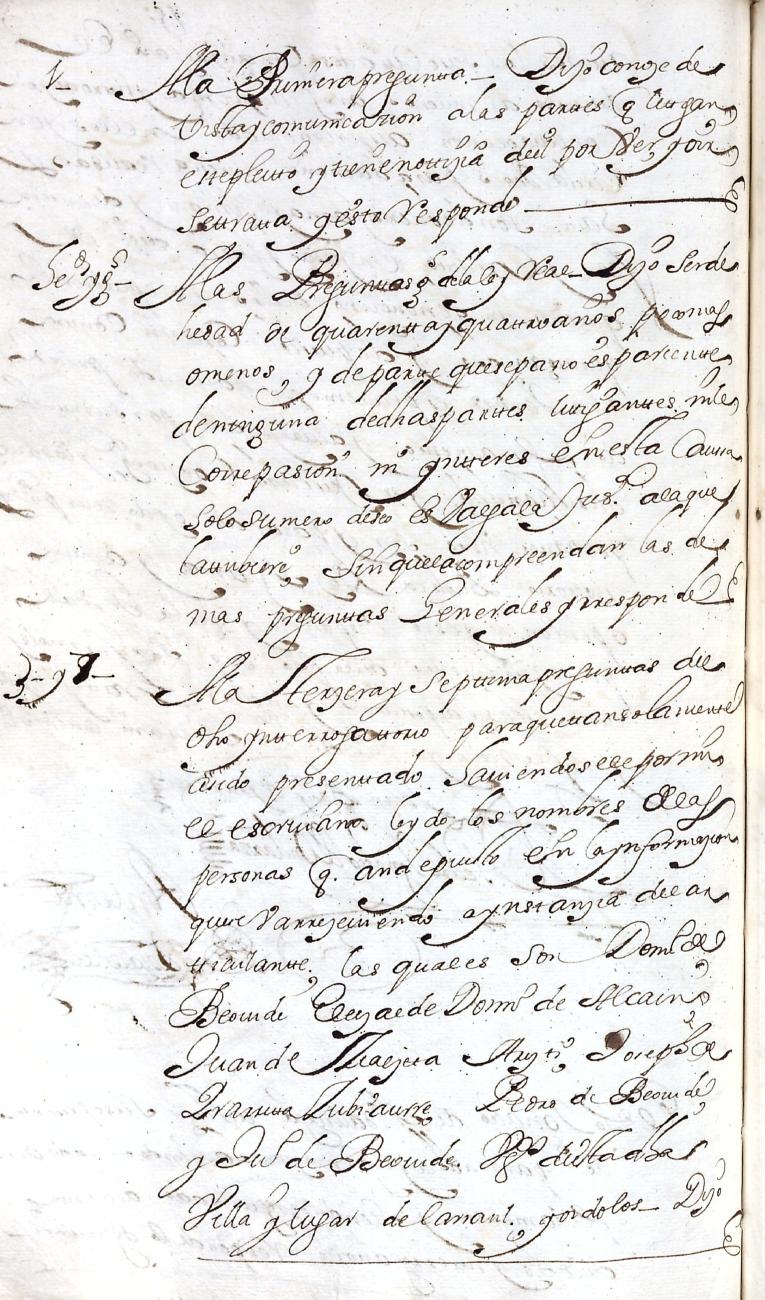 1
A la Primera pregunta – Dijo conoze de
Vista y comunicazion a las partes q litigan
este pleito y tiene notizia del por Ver y oir
Se trata y esto Responde
Ge.s
A las Preguntas g.s de la ley Real – Dijo ser de
hedad de quarenta y quatro años poco mas
o menos, y de parte que sepa no es pariente
de ninguna de dhas partes litigantes ni le
Corre pasion ni ynteres en esta Causa
Solo su mero deseo es Valga la Jus.a a la que
la tubiere, Sin que le acompreendan las de
mas preguntas Generales y responde
3 – y 7 –
A la Terzera y Septima preguntas de
dho ynterrogatorio para que tan solamente
a sido presentado Saviendosele por mi
el escrivano leydo los nombres de las
personas q. an depuesto en la ynformazion
que se Va rreziviendo a ynstanzia del ar
ticulante, las quales son Dom.o de
Beovide Domi.o de Alcain
Juan de Joseph de
Yrarruta Zubiaurre Pedro de Beovide
y Ju.o de Beovide V.os de esta dha
Villa y lugar de y oidolos – Dijo